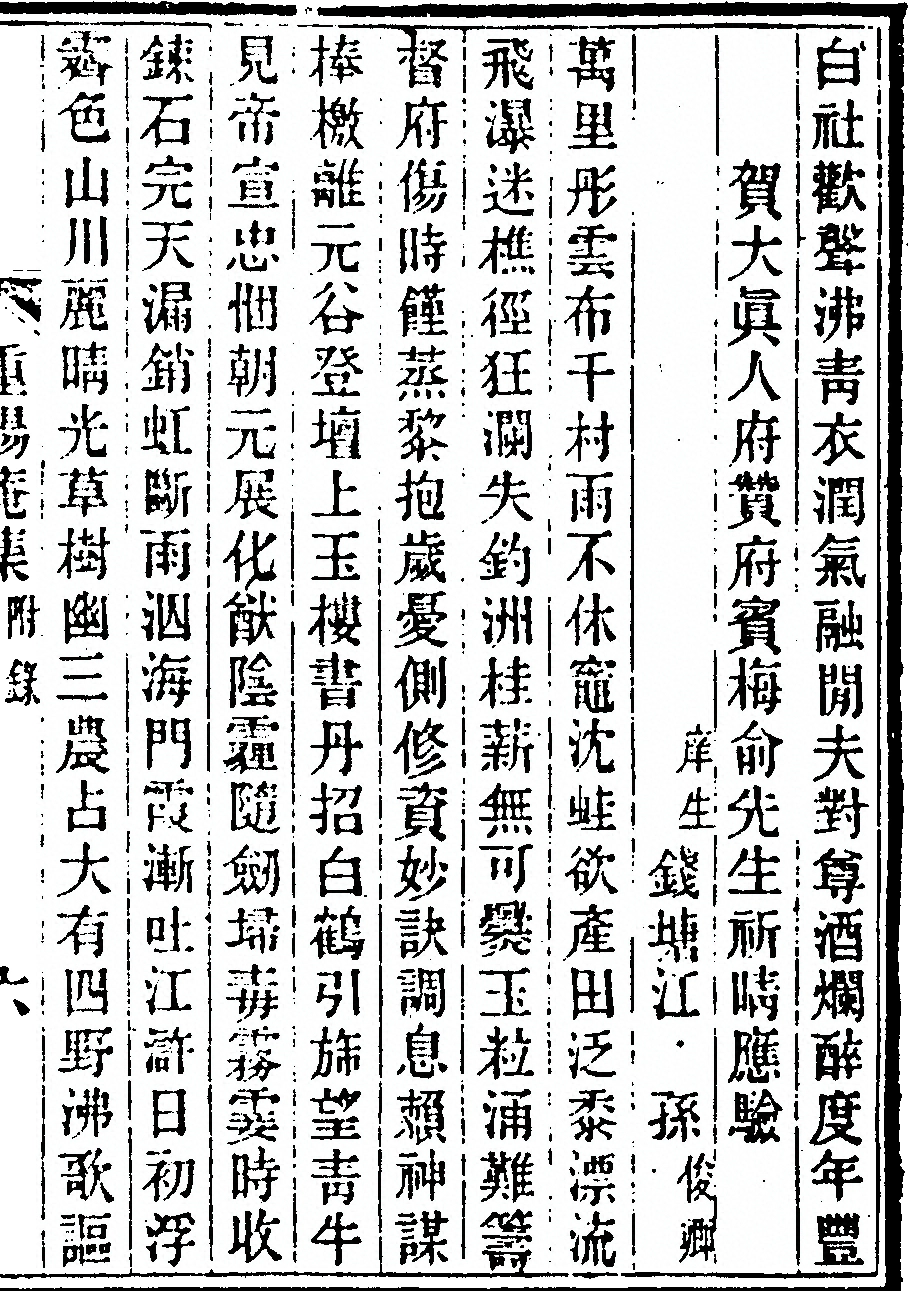 白社歡聲沸青衣潤氣融閒夫對尊酒爛醉度年豐
賀大眞人府贊府賓梅俞先生祈晴應驗
庠生錢塘江孫俊卿
萬里彤雲布千村雨不休竈沈蛙欲產田泛黍漂流
飛瀑迷樵徑狂瀾失釣洲桂薪無可爨玉粒涌難籌
督府傷時饉蒸黎抱歲憂側修賫妙訣調息賴神謀
捧檄離元谷登壇上玉樓書丹招白鶴引旆望青牛
見帝宣忠悃朝元展化猷陰霾隨劒埽毒霧霎時收
鍊石完天漏銷虹斷雨泗海門霞漸吐江滸日初浮
霽色山川麗晴光草樹幽三農占大有四野沸歌謳
重陽庵集 附錄 六